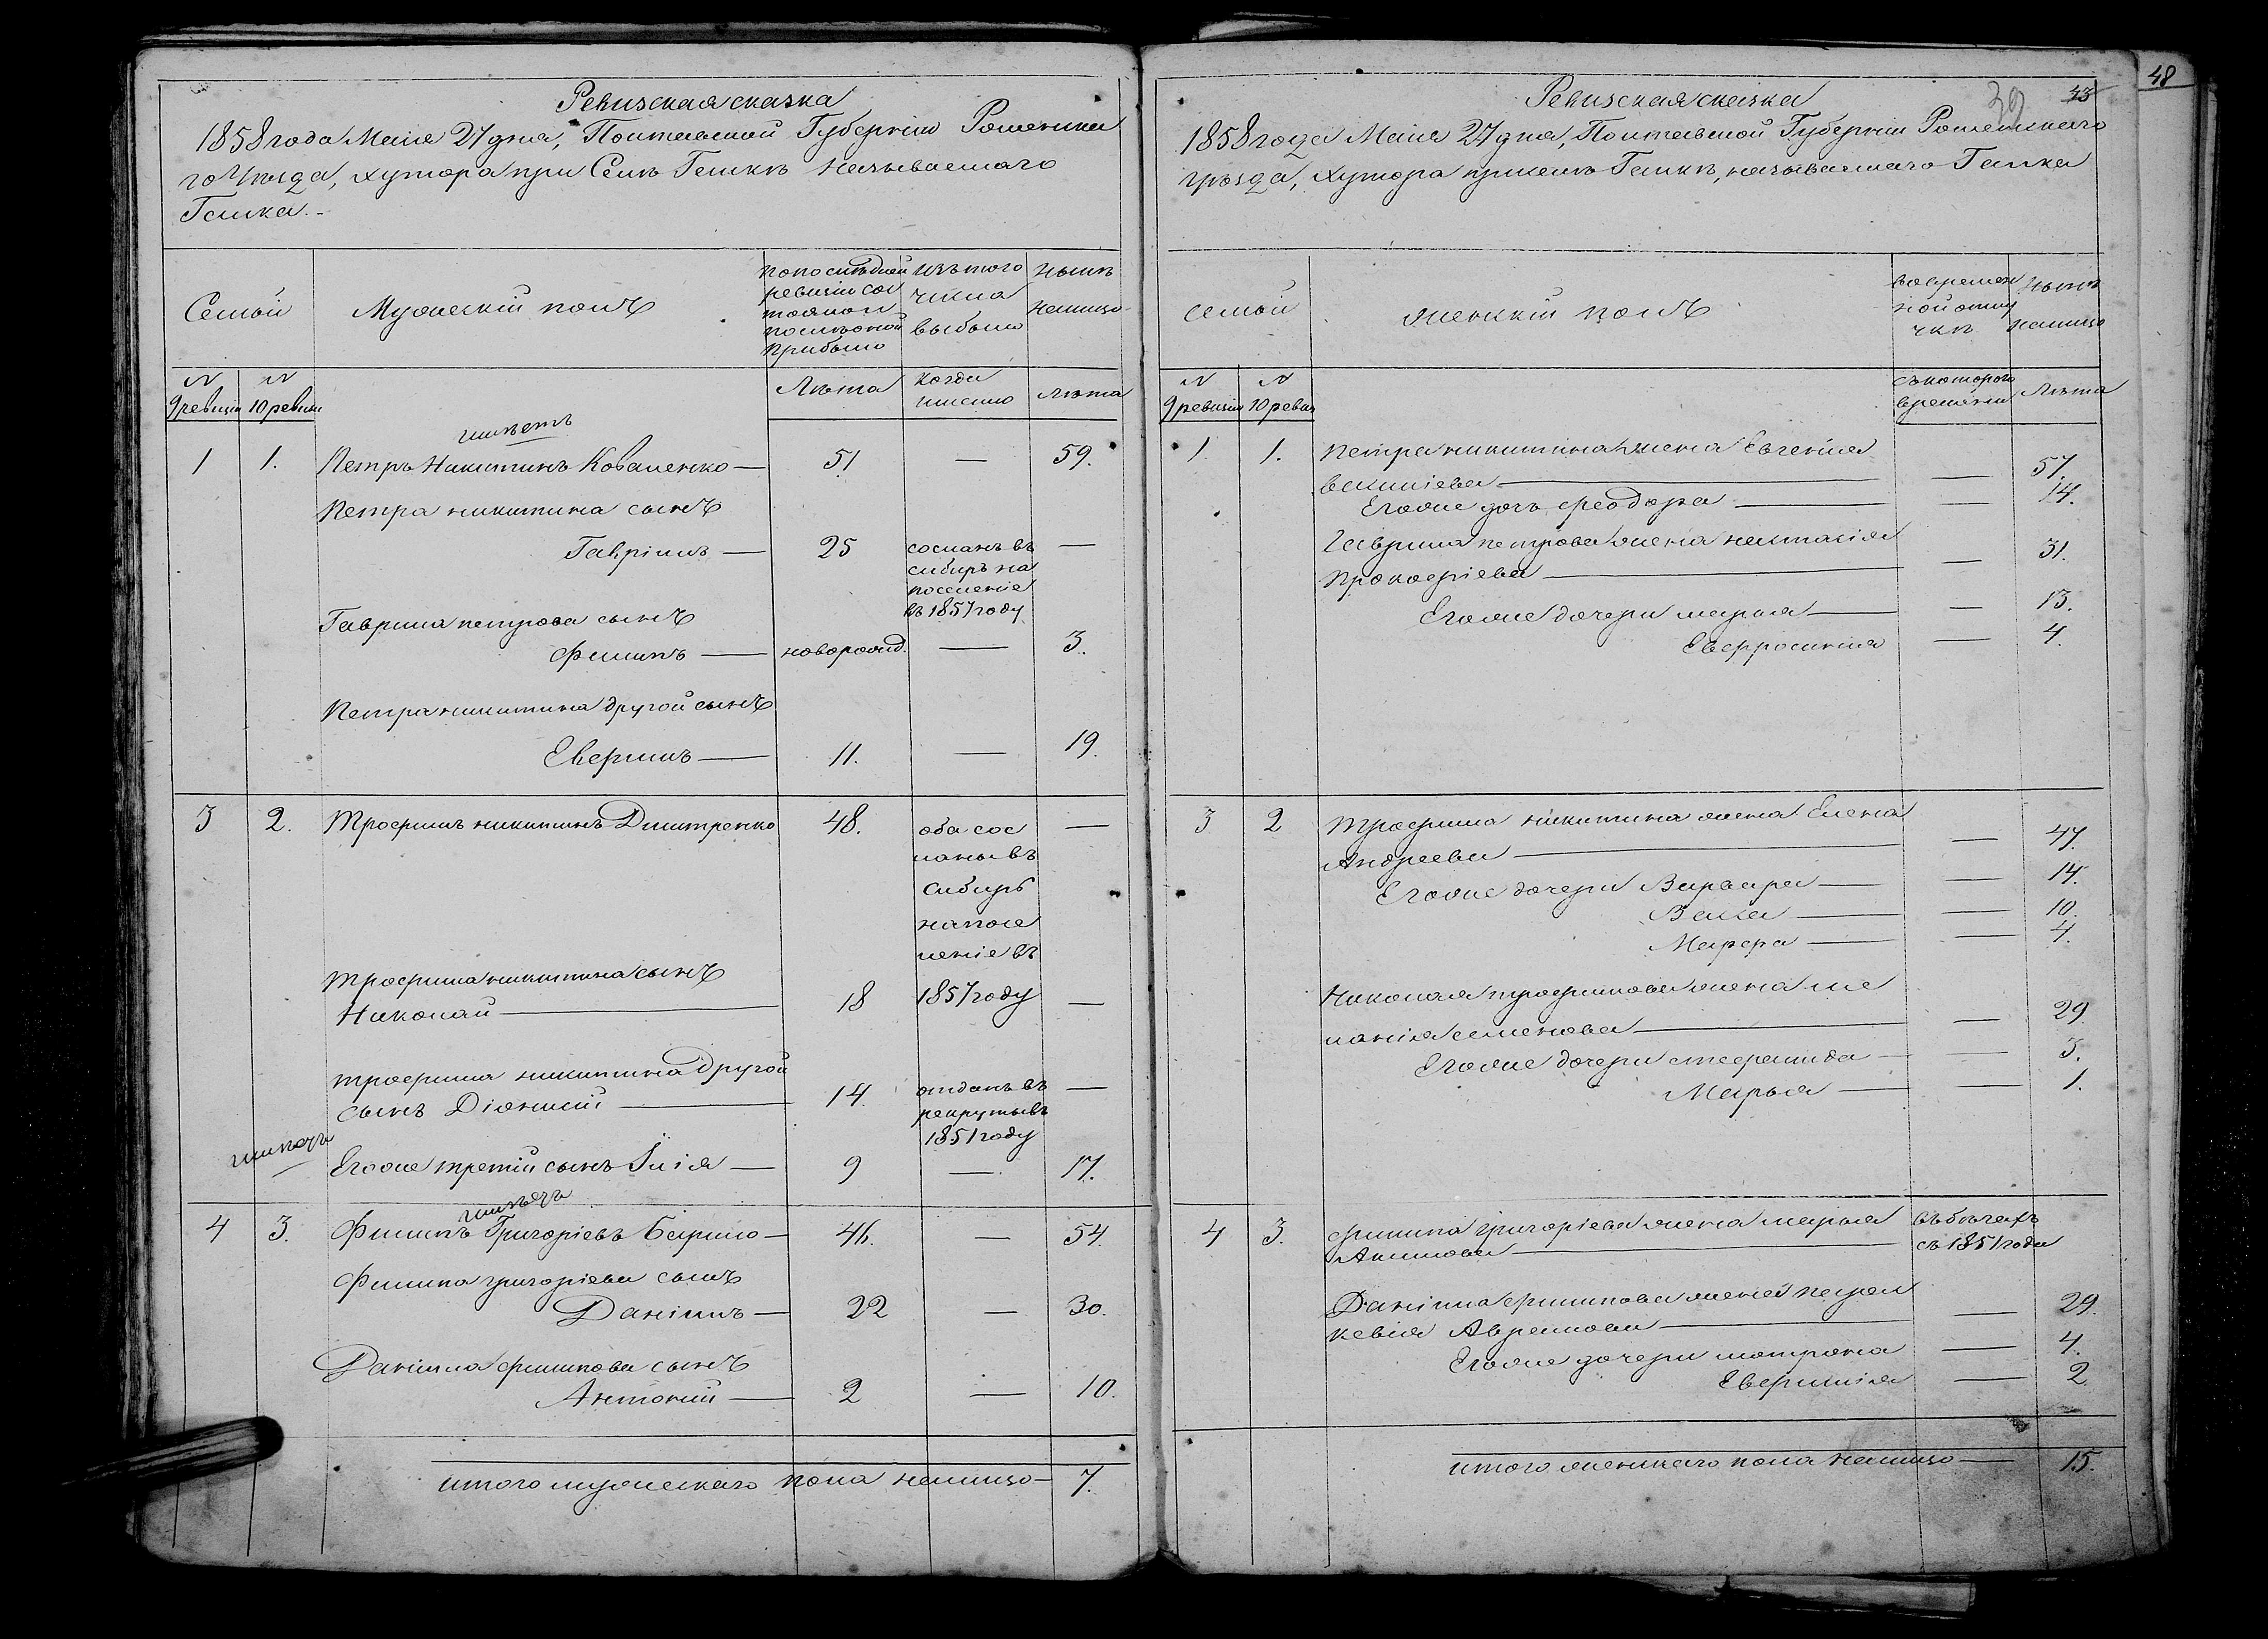 Ревизская сказка
1858 года Маія 27 дня, Полтавской Губерніи Роменска
го Уѣзда, хутора при Селѣ Гамкѣ называемаго
Гамка.
Семьи
Мужескій полъ
по последней
ревизіи сос
тояло и
после оной
прибыло
изъ того
числа
выбыло
нынѣ
налицо
N
9 ревизіи
N
10 ревизіи
Лѣта
когда
имено
лѣта
1
1.
Петръ Никитинъ Коваленко —
51
—
59.
Петра никитина сынъ
Гавріилъ —
25
сосланъ въ
сибирь на
поселеніе
въ 1857 году
—
Гаврила петрова сынъ
Филипъ —
новорожд.
—
3.
Петра никитина другой сынъ
Евфимъ —
11.
—
19.
3
2.
Трофимъ никитинъ Дмитренко
48.
оба сос
ланы въ
Сибирь
на посе
леніе въ
1857 году
—
Трофима никитина сынъ
Николай —
18
—
Трофима никитина другой
сынъ Діонисій —
14
отданъ въ
рекруты въ
1851 году
—
Егоже третій сынъ Илія —
9
—
17.
4
3.
Филипъ Григоріевъ Барило —
46.
—
54.
Филипа григоріева сынъ
Даніилъ —
22
—
30.
Даніила филипова сынъ
Антоній —
2
—
10.
итого мужескаго пола налицо —
7.
48
39
33
Ревизская сказка
1858 года Маія 27 дня, Полтавской Губерніи Роменскаго
уѣзда, хутора приселѣ Гамкѣ, называемаго Гамка
семьи
женскій полъ
во времен
ной отлу
чкѣ
нынѣ
налицо
N
9 ревизіи
N
10 ревиз
съ котораго
времени
Лѣта
1.
1.
Петра никитина жена Евгенія
василіева —
—
57.
Егоже дочь феодора —
—
14.
Гаврила петрова жена наталія
Прокофіева —
—
31.
Егоже дочери марья —
—
13.
Евфросинія
—
4.
3
2
Трофима никитина жена Елена
Андреева —
—
47.
Егоже дочери Варвара —
—
14.
Васса —
—
10.
Марфа —
—
4.
Николая трофимова жена ме
ланія семенова —
—
29
Егоже дочери степанида —
—
3.
Марья —
—
1.
4
3.
филипа григоріева жена марья
Акимова —
въ бѣгахъ
съ 1851 года
Даніила филипова жена парас
кевія Аврамова —
—
29.
Егоже дочери матрона
—
4.
Евфимія
—
2
итого женскаго пола налицо —
15.